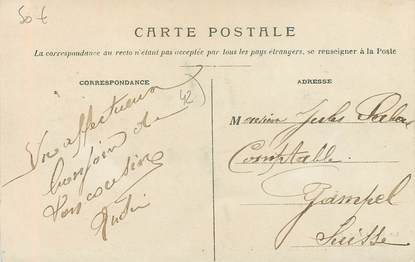 50 €
CARTE POSTALE
La correspondance au recto n'étant pas acceptée par tous les pays étrangers, se renseigner à la Poste
CORRESPONDANCE
Un affectueux
bonjour de
ton cousin
42
ADRESSE
Monsieur Jules
Comptable
Gampel
Suisse